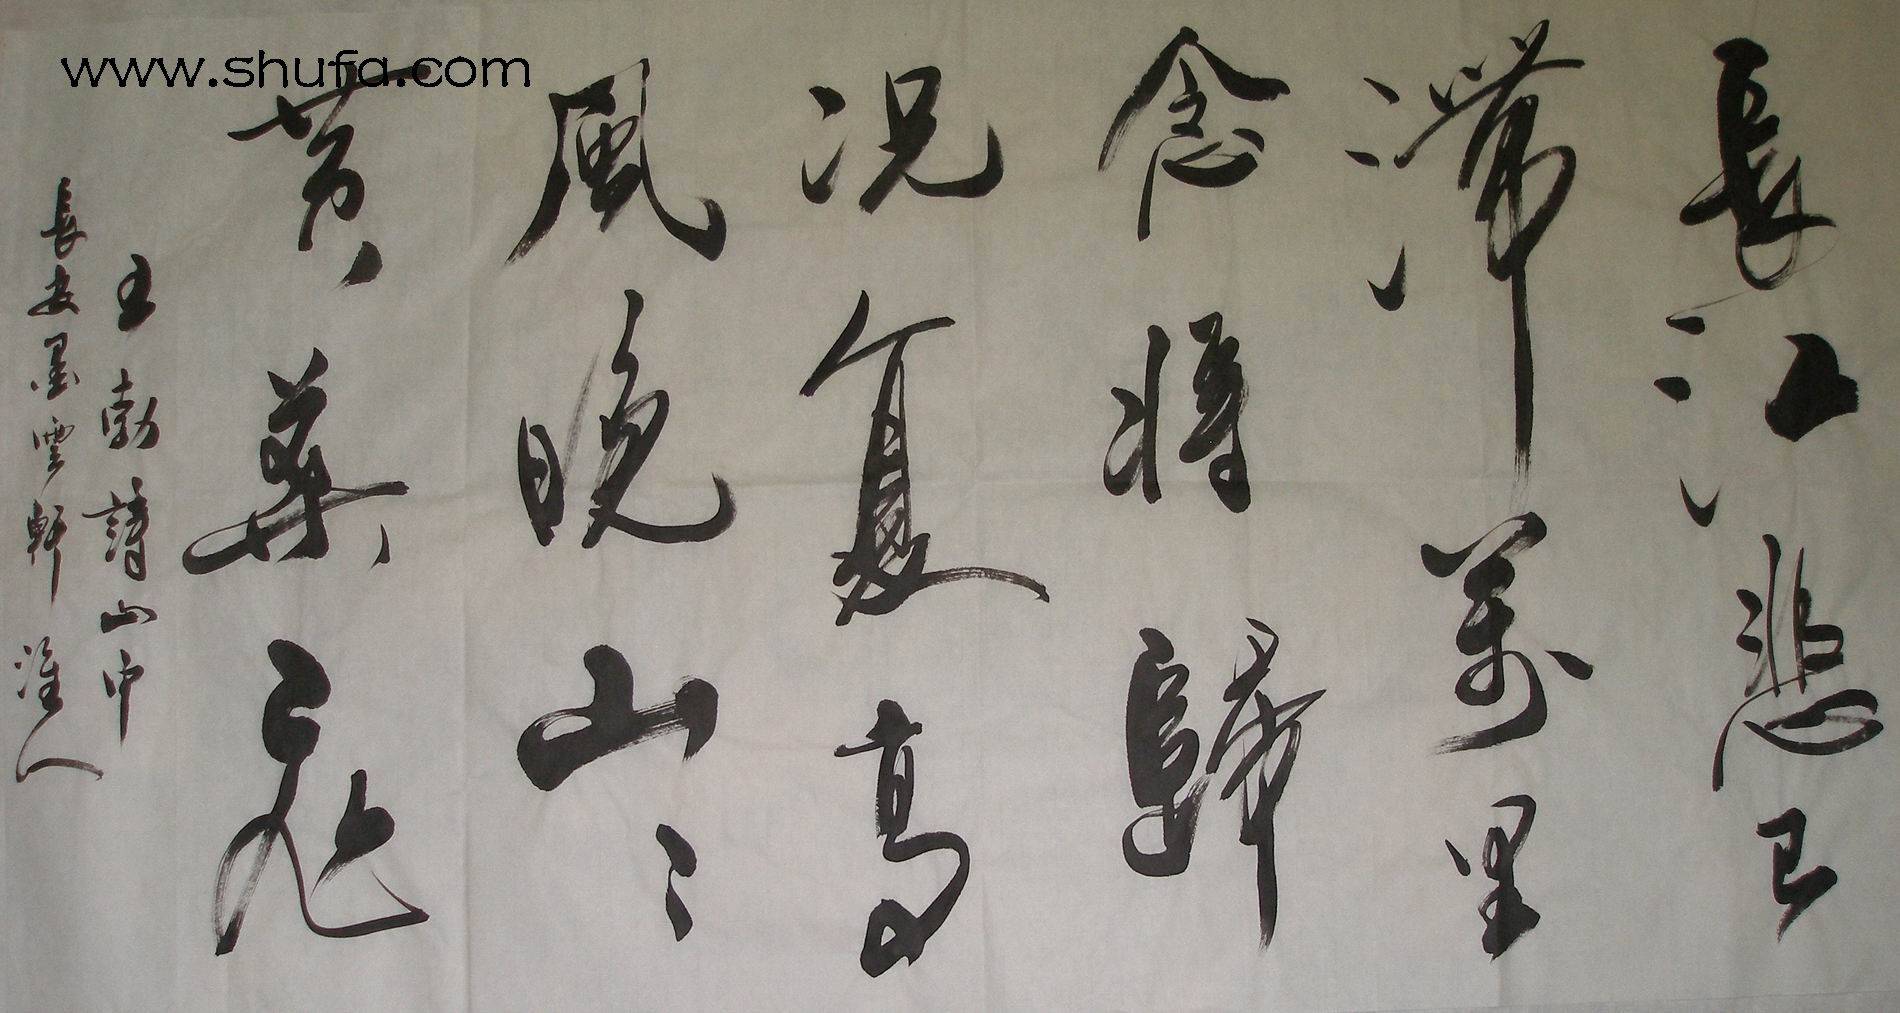 www.shufa.com
長江悲已
滯萬里
念將歸
況复高
風晚山〻
黄葉飛
王勃詩山中
長安墨雲軒淮人